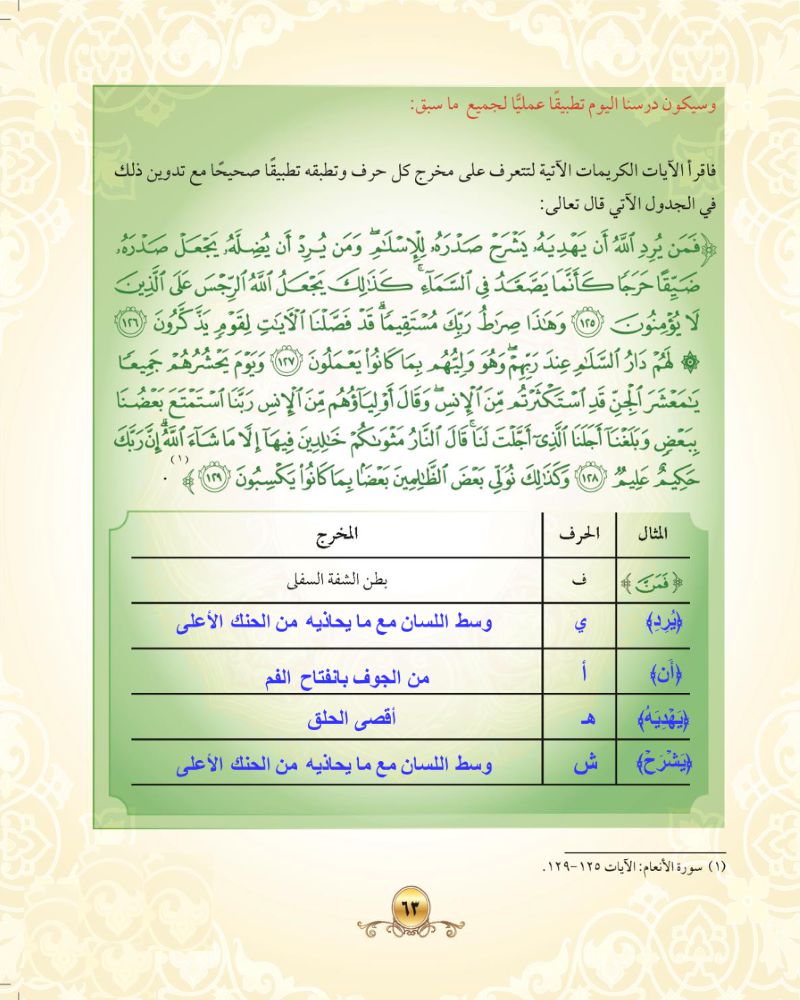 وسيكون درسنا اليوم تطبيقًا عمليًّا لجميع ما سبق:
فاقرأ الآيات الكريمات الآتية لتتعرف على مخرج كل حرف وتطبقه تطبيقًا صحيحًا مع تدوين ذلك
في الجدول الآتي قال تعالى:
﴿فَمَن يُرِدِ ٱللَّهُ أَن يَهۡدِيَهُۥ يَشۡرَحۡ صَدۡرَهُۥ لِلۡإِسۡلَٰمِۖ وَمَن يُرِدۡ أَن يُضِلَّهُۥ يَجۡعَلۡ صَدۡرَهُۥ
ضَيِّقًا حَرَجٗا كَأَنَّمَا يَصَّعَّدُ فِي ٱلسَّمَآءِۚ كَذَٰلِكَ يَجۡعَلُ ٱللَّهُ ٱلرِّجۡسَ عَلَى ٱلَّذِينَ
لَا يُؤۡمِنُونَ ١٢٥ وَهَٰذَا صِرَٰطُ رَبِّكَ مُسۡتَقِيمٗاۗ قَدۡ فَصَّلۡنَا ٱلۡأٓيَٰتِ لِقَوۡمٖ يَذَّكَّرُونَ ١٢٦
۞ لَهُمۡ دَارُ ٱلسَّلَٰمِ عِندَ رَبِّهِمۡۖ وَهُوَ وَلِيُّهُم بِمَا كَانُواْ يَعۡمَلُونَ ١٢٧ وَيَوۡمَ يَحۡشُرُهُمۡ جَمِيعٗا
يَٰمَعۡشَرَ ٱلۡجِنِّ قَدِ ٱسۡتَكۡثَرۡتُم مِّنَ ٱلۡإِنسِۖ وَقَالَ أَوۡلِيَآؤُهُم مِّنَ ٱلۡإِنسِ رَبَّنَا ٱسۡتَمۡتَعَ بَعۡضُنَا
بِبَعۡضٖ وَبَلَغۡنَآ أَجَلَنَا ٱلَّذِيٓ أَجَّلۡتَ لَنَاۚ قَالَ ٱلنَّارُ مَثۡوَىٰكُمۡ خَٰلِدِينَ فِيهَآ إِلَّا مَا شَآءَ ٱللَّهُۗ إِنَّ رَبَّكَ
حَكِيمٌ عَلِيمٞ ١٢٨ وَكَذَٰلِكَ نُوَلِّي بَعۡضَ ٱلظَّٰلِمِينَ بَعۡضَۢا بِمَا كَانُواْ يَكۡسِبُونَ ١٢٩﴾ (١) .
المثال الحرف المخرج
﴿فَمَن﴾ ف بطن الشفة السفلى
﴿يُرِدِ﴾ ي وسط اللسان مع ما يحاذيه من الحنك الأعلى
﴿أَن﴾ أ من الجوف بانفتاح الفم
﴿يَهۡدِيَهُ﴾ هـ أقصى الحلق
﴿يَشۡرَحۡ﴾ ش وسط اللسان مع ما يحاذيه من الحنك الأعلى
(١) سورة الأنعام: الآيات ١٢٥-١٢٩.
٦٣